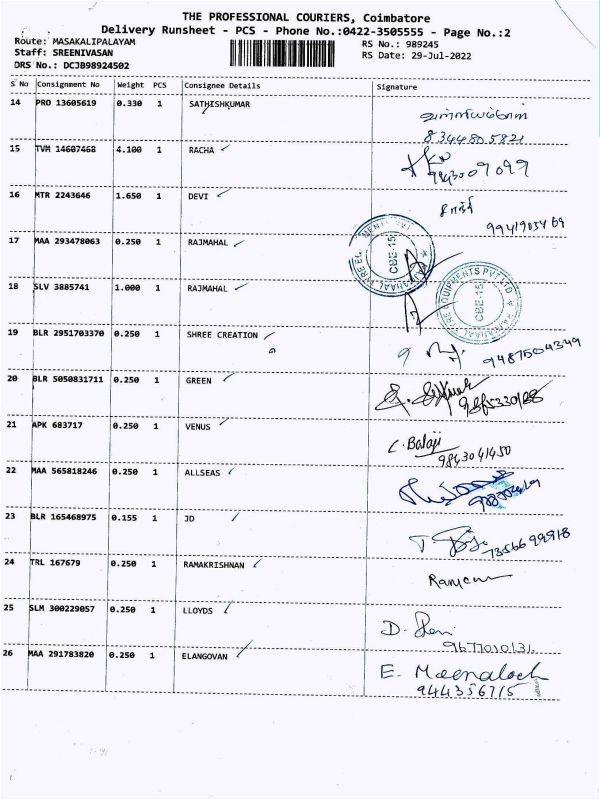 THE PROFESSIONAL COURIERS, Coimbatore
Delivery Runsheet - PCS - Phone No.:0422-3505555 - Page No.:2
Route: MASAKALIPALAYAM
RS No.: 989245
Staff: SREENIVASAN
RS Date: 29-Jul-2022
DRS No.: DCJB98924502
S No Consignment No Weight PCS Consignee Details Signature
14 PRO 13605619 0.330 1 SATHISHKUMAR
8344805821
15 TVM 14607468 4.100 1 RACHA
16 MTR 2243646 1.650 1 DEVI
17 MAA 293478063 0.250 1 RAJMAHAL
CBE-15
18 SLV 3885741 1.000 1 RAJMAHAL
EQUIPMENTS PVT LTD
CBE-15
19 BLR 2951703370 0.250 1 SHREE CREATION
9487504349
20 BLR 5050831711 0.250 1 GREEN
21 APK 683717 0.250 1 VENUS
C. Balaji
9843041450
22 MAA 565818246 0.250 1 ALLSEAS
23 BLR 165468975 0.155 1 JD
24 TRL 167679 0.250 1 RAMAKRISHNAN
25 SLM 300229057 0.250 1 LLOYDS
26 MAA 291783820 0.250 1 ELANGOVAN